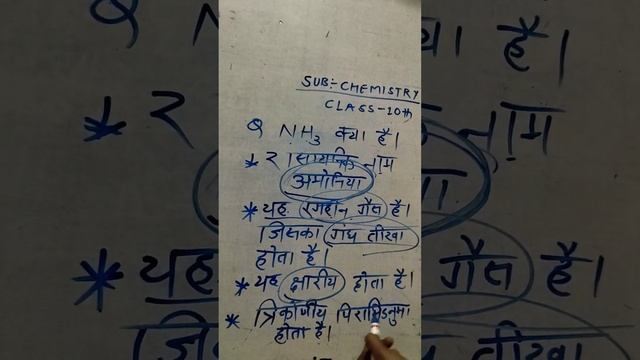 SUB:- CHEMISTRY
CLASS-10th
Q NH3 क्या है।
* रासायनिक नाम
अमोनिया
* यह रंगहीन गैस है।
जिसका गंध तीखा
होता है।
* यह क्षारीय होता है।
* त्रिकोणीय पिरामिडनुमा
होता है।